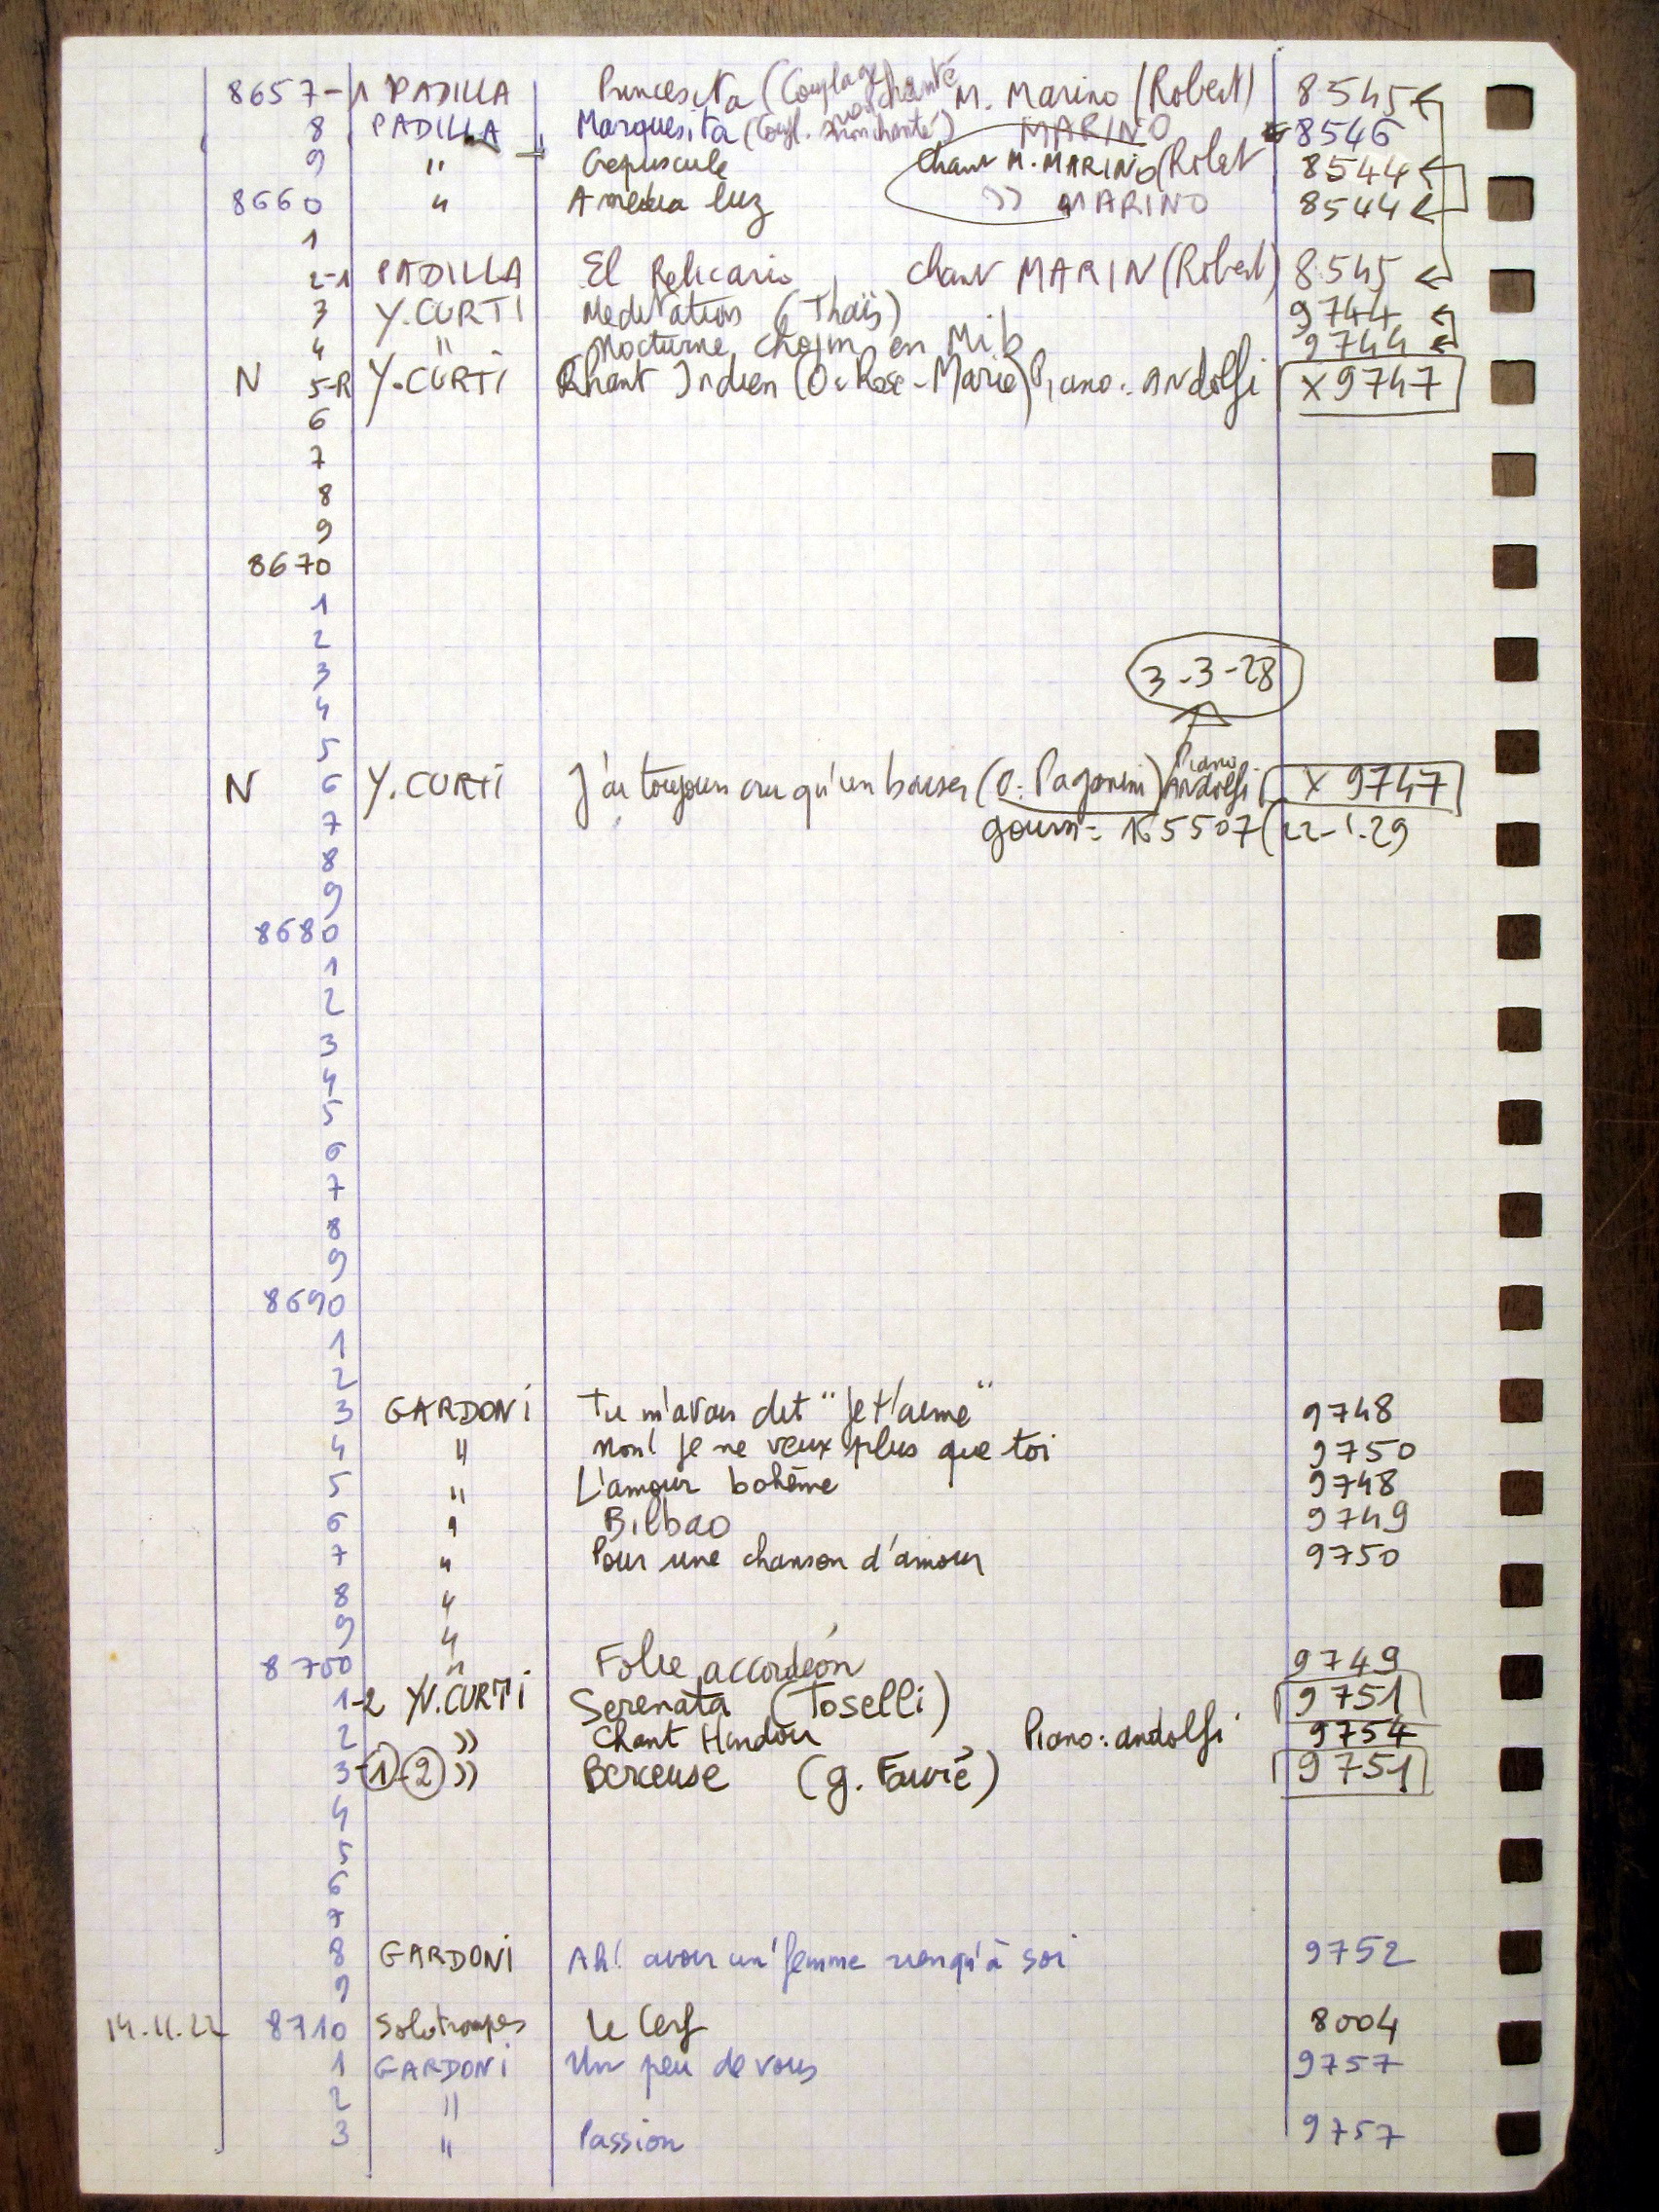 8657-1 PADILLA Princesita (Couplage non chanté) M. Marino (Robert) 8545
8 PADILLA Marquesita (Coupl. non chanté) MARINO 8546
9 " Crepuscule Chant M. MARINO (Robert 8544
8660 " A media luz " MARINO 8544
1
2-1 PADILLA El Relicario chant MARIN (Robert) 8545
3 Y. CURTI Meditation (Thaïs) 9744
4 " Nocturne Chopin en Mi b 9744
N 5-R Y. CURTI Chant Indien (O: Rose-Marie) Piano: Andolfi X 9747
6
7
8
9
8670
1
2
3
3-3-28
4
5
N 6 Y. CURTI J'ai toujours cru qu'un baiser (O: Paganini) Piano Andolfi X 9747
7 gouin = 165507 (22-1-29
8
9
8680
1
2
3
4
5
6
7
8
9
8690
1
2
3 GARDONI Tu m'avais dit "je t'aime" 9748
4 " Non! je ne veux plus que toi 9750
5 " L'amour bohême 9748
6 " Bilbao 9749
7 " Pour une chanson d'amour 9750
8 "
9 "
8700 " Folie accordéon 9749
1-2 YV. CURTI Serenata (Toselli) 9751
2 " Chant Hindou Piano: andolfi 9754
3-1-2 " Berceuse (g. Fauré) 9751
4
5
6
7
8 GARDONI Ah! avoir un' femme rienqu'à soi 9752
9
8710 Solotrompes Le Cerf 8004
1 GARDONI Un peu de vous 9757
2 "
3 " Passion 9757